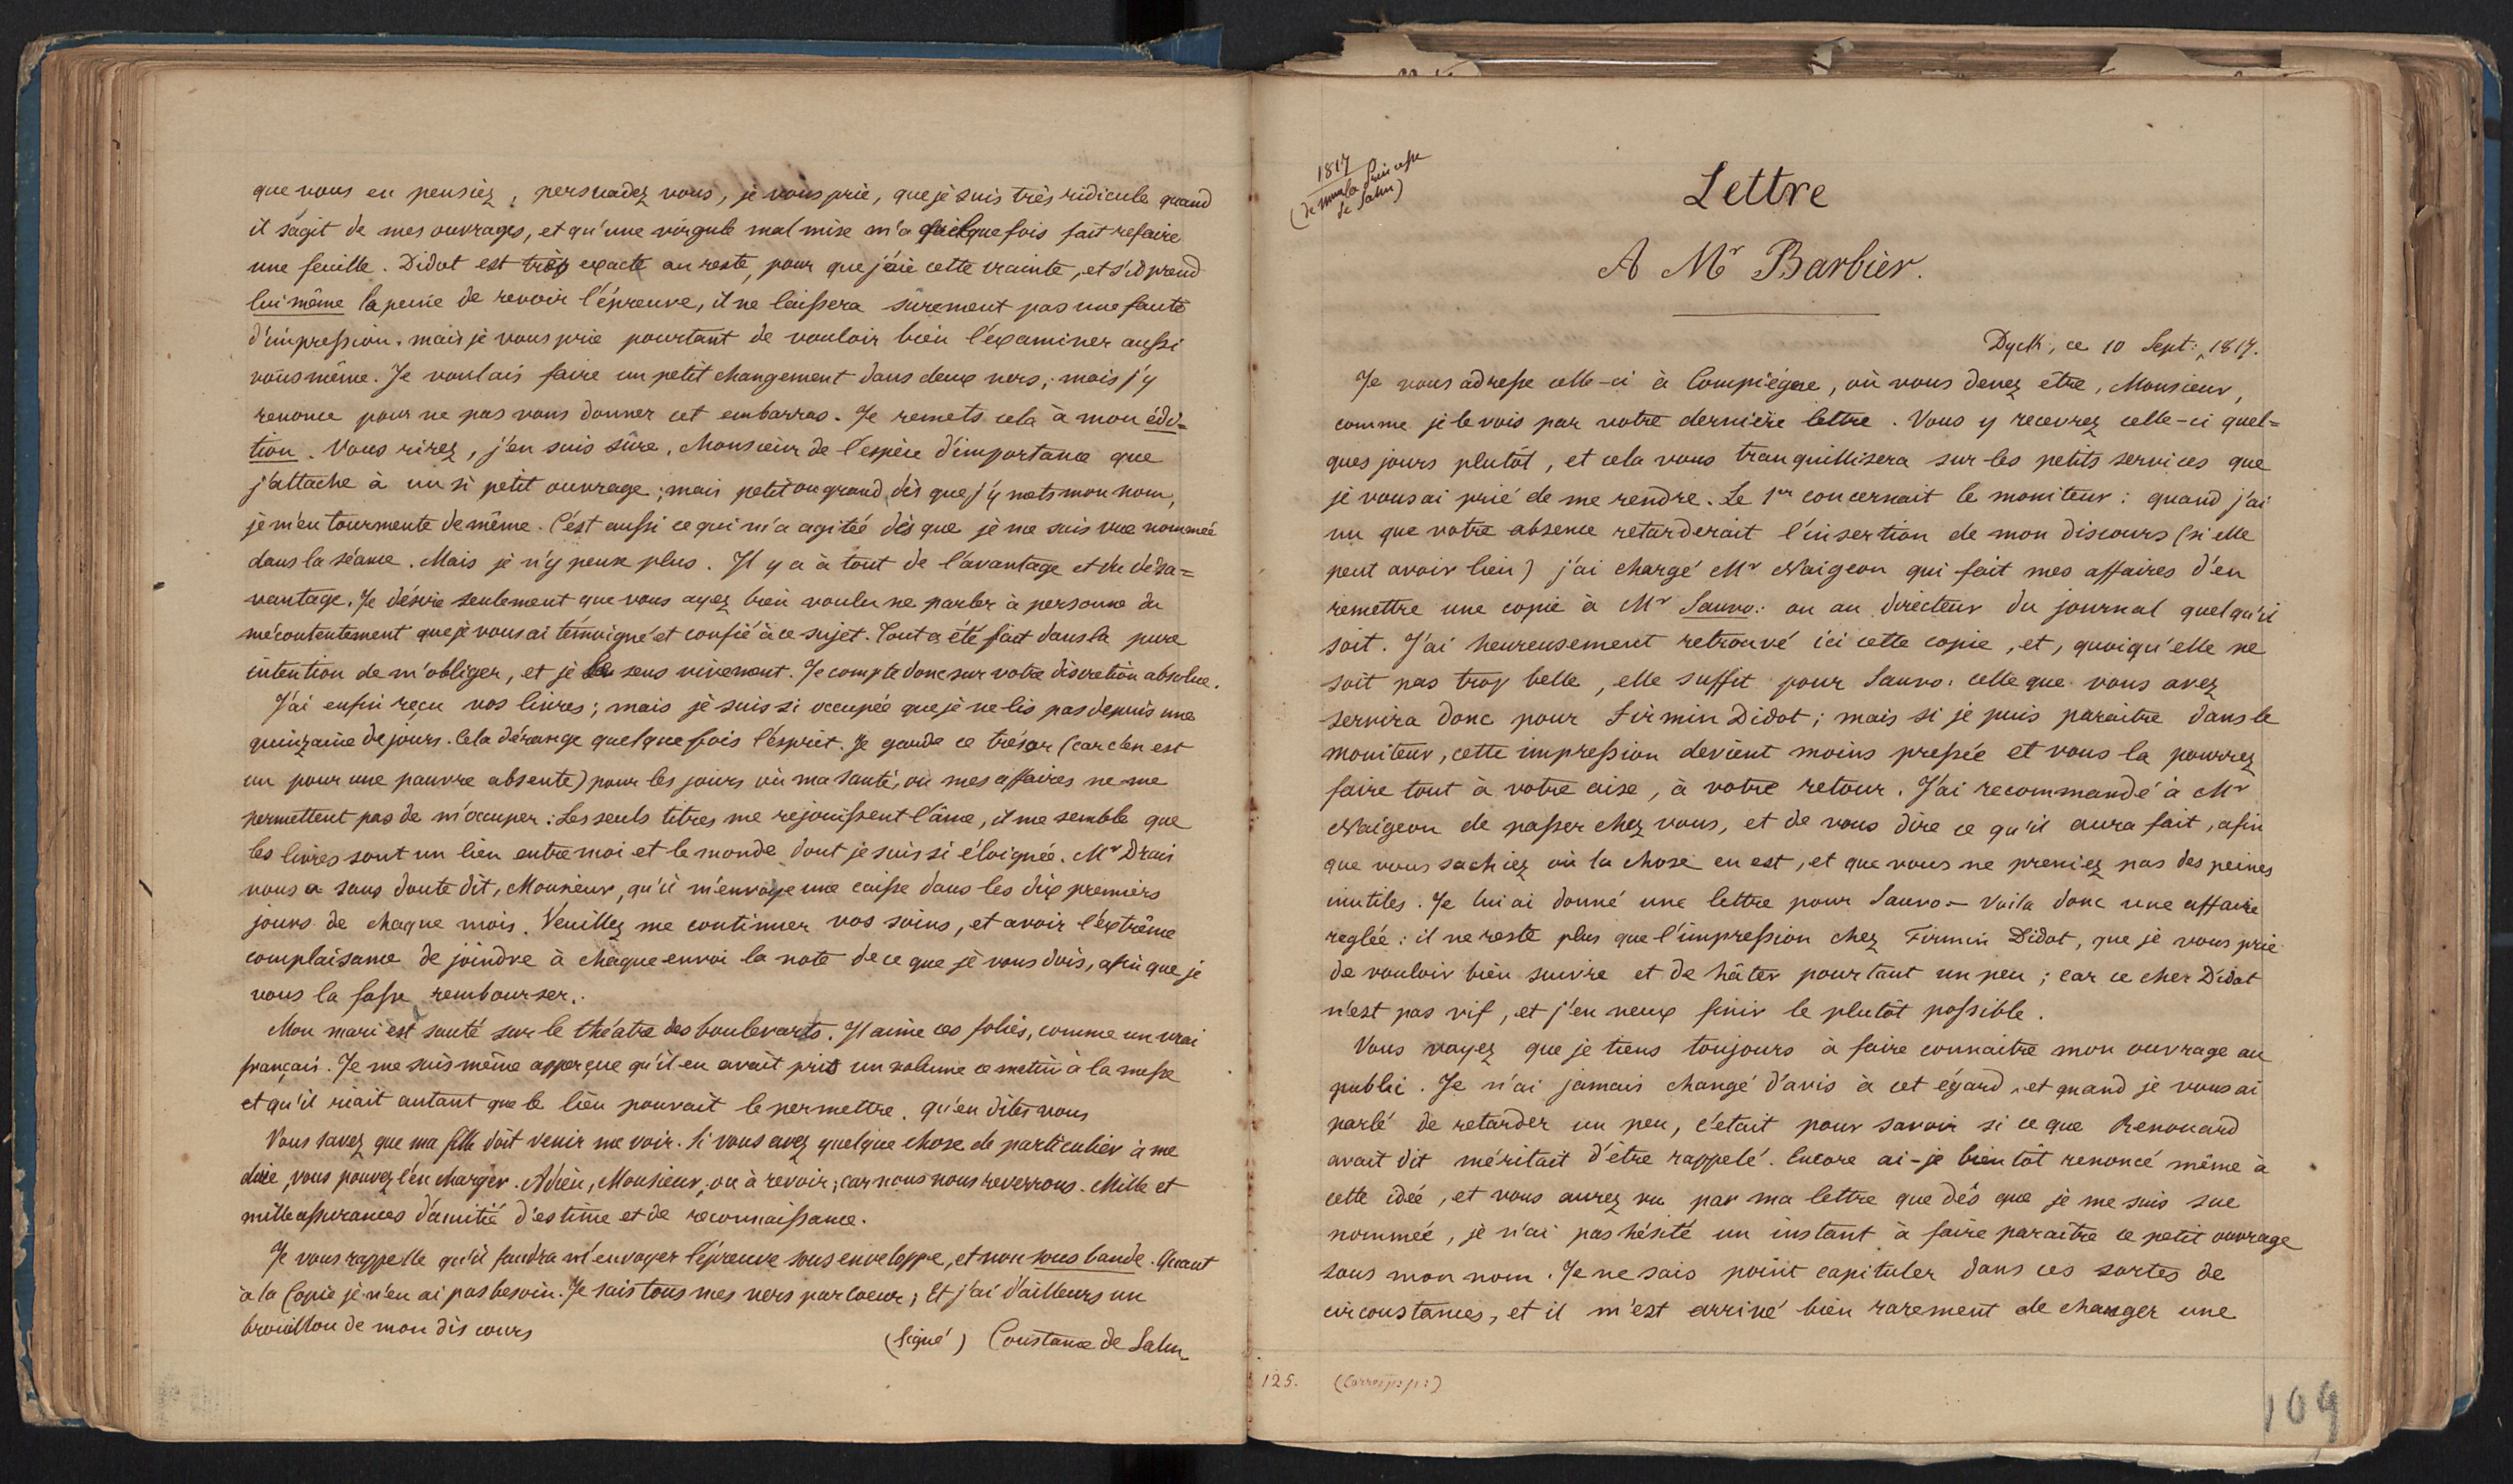 que vous en pensiez, persuadez vous, je vous prie, que je suis très ridicule quand
il s'agit de mes ouvrages, et qu'une virgule mal mise m'a quelquefois fait refaire
une feuille. Didot est trop exacte au reste, pour que j'aie cette crainte, et s'il prend
lui même la peine de revoir l'épreuve, il ne laissera surement pas une faute
d'impression. mais je vous prie pourtant de vouloir bien l'examiner aussi
vous même. Je voulais faire un petit changement dans deux vers; mais j'y
renonce pour ne pas vous donner cet embarras. Je remets cela à mon édi=
tion. Vous rirez, j'en suis sûre, Monsieur de l'espèce d'importance que
j'attache à un si petit ouvrage; mais petit ou grand, dès que j'y mets mon nom,
je m'en tourmente de même. C'est aussi ce qui m'a agitée dès que je me suis vue nommée
dans la séance. Mais je n'y pense plus. Il y a à tout de l'avantage et du désa=
vantage. Je désire seulement que vous ayez bien voulu ne parler à personne du
mécontentement que je vous ai témoigné et confié à ce sujet. Tout a été fait dans la pure
intention de m'obliger, et je le sens vivement. Je compte donc sur votre discretion absolue.
J'ai enfin reçu vos livres; mais je suis si occupée que je ne lis pas depuis une
quinzaine de jours. Cela dérange quelquefois l'esprit. Je garde ce trésor (car c'en est
un pour une pauvre absente) pour les jours où ma santé, où mes affaires ne me
permettent pas de m'occuper: Les seuls titres me rejouissent l'âme, il me semble que
les livres sont un lien entre moi et le monde dont je suis si éloignée. Mr Drais
vous a sans doute dit, Monsieur, qu'il m'envoye une caisse dans les dix premiers
jours de chaque mois. Veuillez me continuer vos soins, et avoir l'extrême
complaisance de joindre à chaque envoi la note de ce que je vous dois, afin que je
vous la fasse rembourser.
Mon mari est sauté sur le théatre des boulevarts. Il aime ces folies, comme un vrai
français. Je me suis même apperçue qu'il en avait pris un volume ce matin à la messe
et qu'il riait autant que le lieu pouvait le permettre. qu'en dites vous
Vous savez que ma fille doit venir me voir. Si vous avez quelque chose de particulier à me
dire, vous pouvez l'en charger. Adieu, Monsieur, ou à revoir; car nous nous reverrons. Mille et
mille assurances d'amitié d'estime et de reconnaissance.
Je vous rappelle qu'il faudra m'envoyer l'épreuve sous enveloppe, et non sous bande. Quant
à la Copie je n'en ai pas besoin. Je sais tous mes vers par coeur; Et j'ai d'ailleurs un
brouillon de mon discours
(Signé) Constance de Salm
1817
(de mme la Princesse
de Salm)
Lettre
A Mr Barbier.
Dyck, ce 10 Sept:, 1817.
Je vous adresse celle-ci à Compiégne, où vous devez être, Monsieur,
comme je le vois par votre dernière lettre. Vous y recevrez celle-ci quel=
ques jours plutôt, et cela vous tranquillisera sur les petits services que
je vous ai prié de me rendre. Le 1er concernait le moniteur: quand j'ai
vu que votre absence retarderait l'insertion de mon discours (si elle
peut avoir lieu) j'ai chargé Mr Naigeon qui fait mes affaires d'en
remettre une copie à Mr Sauvo: ou au directeur du journal quelqu'il
soit. J'ai heureusement retrouvé ici cette copie, et, quoiqu'elle ne
soit pas trop belle, elle suffit pour Sauvo. celle que vous avez
servira donc pour Firmin Didot; mais si je puis paraitre dans le
moniteur, cette impression devient moins pressée et vous la pourrez
faire tout à votre aise, à votre retour. J'ai recommandé à Mr
Naigeon de passer chez vous, et de vous dire ce qu'il aura fait, afin
que vous sachiez où la chose en est, et que vous ne preniez pas des peines
inutiles. Je lui ai donné une lettre pour Sauvo - Voila donc une affaire
reglée: il ne reste plus que l'impression chez Firmin Didot, que je vous prie
de vouloir bien suivre et de hâter pourtant un peu; car ce cher Didot
n'est pas vif, et j'en veux finir le plutôt possible.
Vous voyez que je tiens toujours à faire connaitre mon ouvrage au
public. Je n'ai jamais changé d'avis à cet égard, et quand je vous ai
parlé de retarder un peu, c'etait pour savoir si ce que Renouard
avait dit méritait d'être rappelé. Encore ai-je bientôt renoncé même à
cette idée, et vous aurez vu par ma lettre que dès que je me suis sue
nommée, je n'ai pas hésité un instant à faire paraitre ce petit ouvrage
sous mon nom. Je ne sais point capituler dans ces sortes de
circonstances, et il m'est arrivé bien rarement de changer une
125.
109